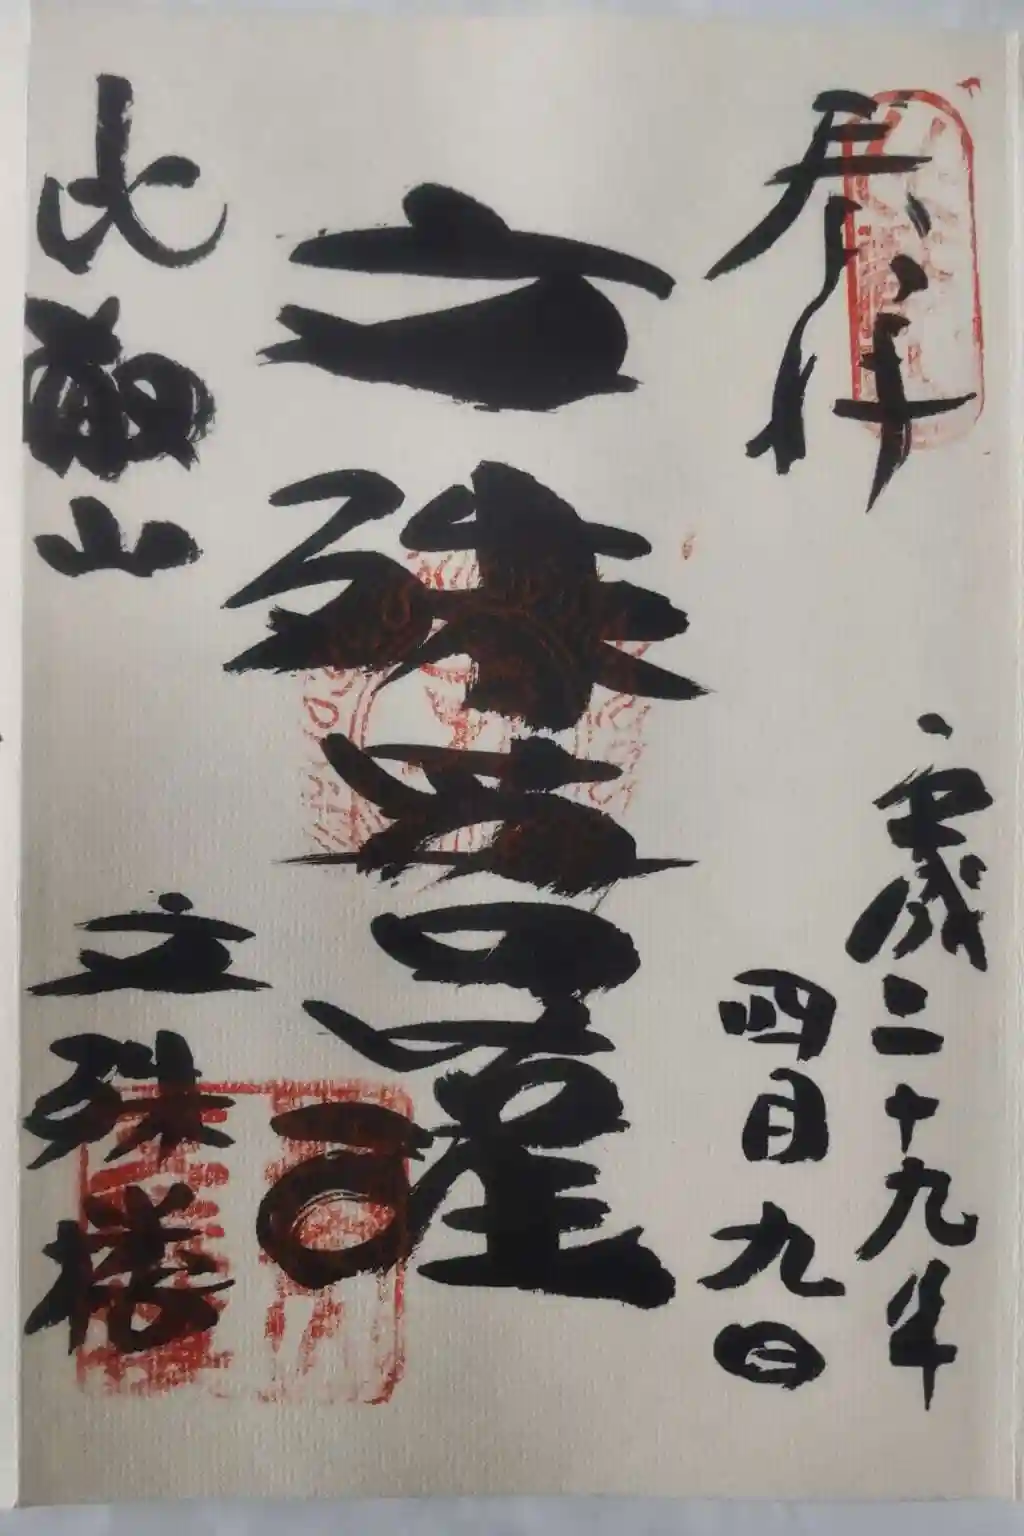 奉拝
平成二十九年
四月九日
文殊菩薩
比叡山
文殊楼